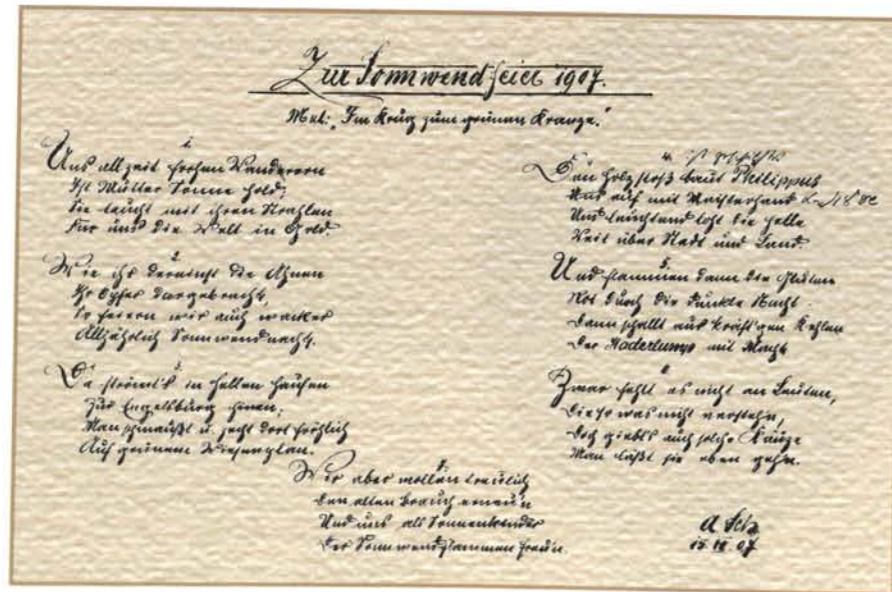 Zur Sonnwendfeier 1907.
Mel: "Im Krug zum grünen Kranze."
1.
Uns allzeit frohen Wanderern
Ist Mutter Sonne hold;
Sie taucht mit ihren Strahlen
Für uns die Welt in Gold.
2.
Wie ihr dereinst die Ahnen
Ihr Opfer dargebracht,
So feiern wir auch wacker
Alljährlich Sonnwendnacht.
3.
Da strömt's in hellen Haufen
Zur Engelsburg hinan;
Man schmaußt u. zecht dort fröhlich
Auf grünem Wiesenplan.
4.
Den Holzstoß baut Philippus
Uns auf mit Meisterhand
Und leuchtend loht die helle
Weit über Stadt und Land.
5.
Und flammen dann die Gluten
Rot durch die dunkle Nacht.
Dann schallt aus kräft'gen Kehlen
Der Haderlump mit Macht
6.
Zwar fehlt es nicht an Leuten,
Die so was nicht verstehn,
Doch giebt's auch solche Käuze
Man läßt sie eben gehn.
7.
Wir aber wollen treulich
Den alten Brauch erneu'n
Und uns als Sonnenkinder
Der Sonnwendflammen freu'n.
A Sch
07